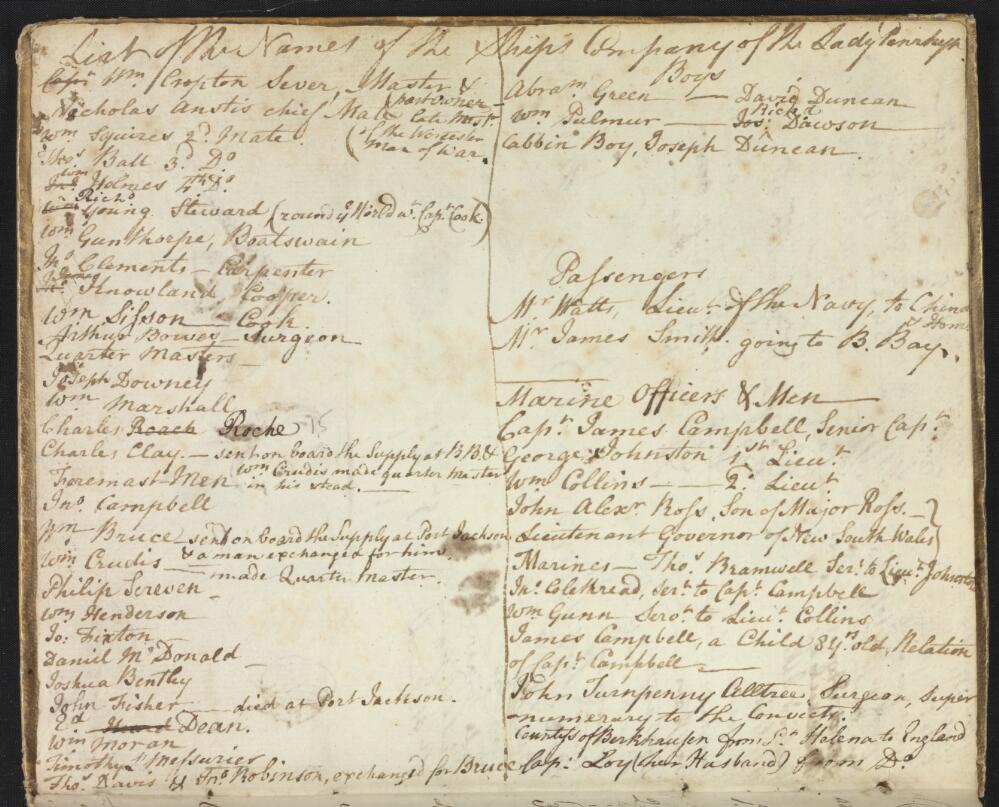 List of the Names of the Ship's Company of the Lady Penrhyn
Capt Wm Cropton Sever, Master &
part owner
Nicholas Anstis chief Mate late Mast.
of the Worcester
Man of War.
Wm Squires 2d. Mate.
Thos Ball 3d. Do
Wm Holmes 4th Do.
Richd Young Steward (round ye World wt. Capt. Cook.)
Wm Gunthorpe, Boatswain
Jno Clements — Carpenter
Knowland Cooper.
Wm Sisson — Cook.
Arthur Bowes — Surgeon
Quarter Masters —
Joseph Downey
Wm Marshall
Charles Roach Roche
Charles Clay. — sent on board the Supply at B.B. &
Wm Crudis made quarter Master
in his stead. —
Foremast-Men
Jno. Campbell
Wm Bruce — sent on board the Supply at Port Jackson
& a man exchanged for him.
Wm Crudis — made Quarter Master.
Philip Screven —
Wm Henderson
Jo: Fixton
Daniel McDonald —
Joshua Bentley
John Fisher — died at Port Jackson.
Ed Dean.
Wm Moran
Timothy Le Messurier
Thos. Davis & Jno Robinson, exchanged for Bruce
Boys
Abram Green — David Duncan
Richd
Wm Pulmur — Jos: Dawson
Cabbin Boy, Joseph Duncan.
Passengers
Mr. Watts, Lieut. of the Navy, to China
& Home
Mr James Smith. going to B. Bay.
Marine Officers & Men —
Capt. James Campbell, Senior Capt.
George Johnston 1st Lieut
Wm Collins — 2d. Lieut
John Alexr Ross, Son of Major Ross —
Lieutenant Governor of New South Wales
Marines — Thos. Bramwell Sert. to Lieut. Johnston
Jno. Colethread, sert. to Capt Campbell
Wm Gunn Servt. to Lieut. Collins
James Campbell, a Child 8 yrs. old, Relation
of Capt. Campbell —
John Turnpenny Alltree, Surgeon, super
-numerary to the Convicts.
Countess of Berkhausen from St. Halena to England
Capt: Loy (her Husband) from Do.